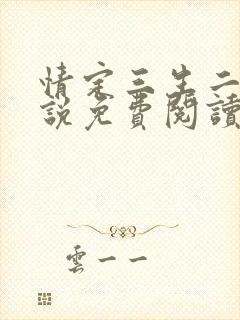 情定三生二
說免費閱讀
雲一一